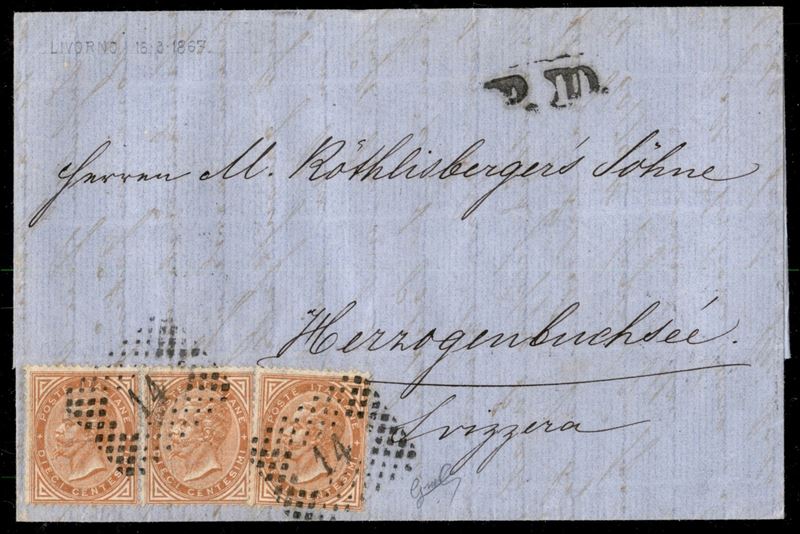 LIVORNO 16-3-1867.
P.D.
Herren M. Röthlisberger's Söhne
Herzogenbuchseé.
Svizzera
POSTE ITALIANE
DIECI CENTESIMI
14
POSTE ITALIANE
DIECI CENTESIMI
POSTE ITALIANE
DIECI CENTESIMI
14